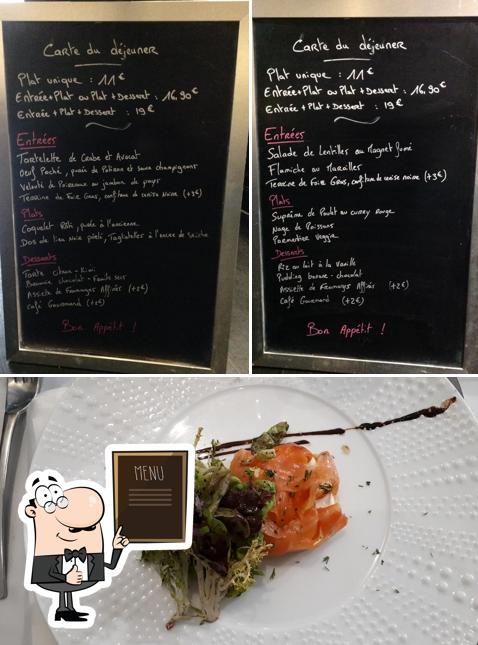 Carte du déjeuner
Plat unique : 11€
Entrée+Plat ou Plat+Dessert : 16,90€
Entrée+Plat+Dessert : 19€
Entrées
Tartelette de Crabe et Avocat
Oeuf Poché, purée de Potiron et sauce champignons
Velouté de Poireaux au jambon de pays
Terrine de Foie Gras, confiture de cerise noire (+3€)
Plats
Coquelet Rôti, purée à l'ancienne
Dos de lieu noir poêlé, Tagliatelles à l'encre de seiche
Desserts
Tarte Choco-Kiwi
Brownie chocolat - Fruits secs
Assiette de Fromages Affinés (+2€)
Café Gourmand (+2€)
Bon Appétit !
Carte du déjeuner
Plat unique : 11€
Entrée+Plat ou Plat+Dessert : 16,90€
Entrée+Plat+Dessert : 19€
Entrées
Salade de Lentilles au Magret fumé
Flamiche au Maroilles
Terrine de Foie Gras, confiture de cerise noire (+3€)
Plats
Suprême de Poulet au curry rouge
Nage de Poissons
Parmentier Veggie
Desserts
Riz au lait à la Vanille
Pudding banane - chocolat
Assiette de Fromages Affinés (+2€)
Café Gourmand (+2€)
Bon Appétit !
MENU